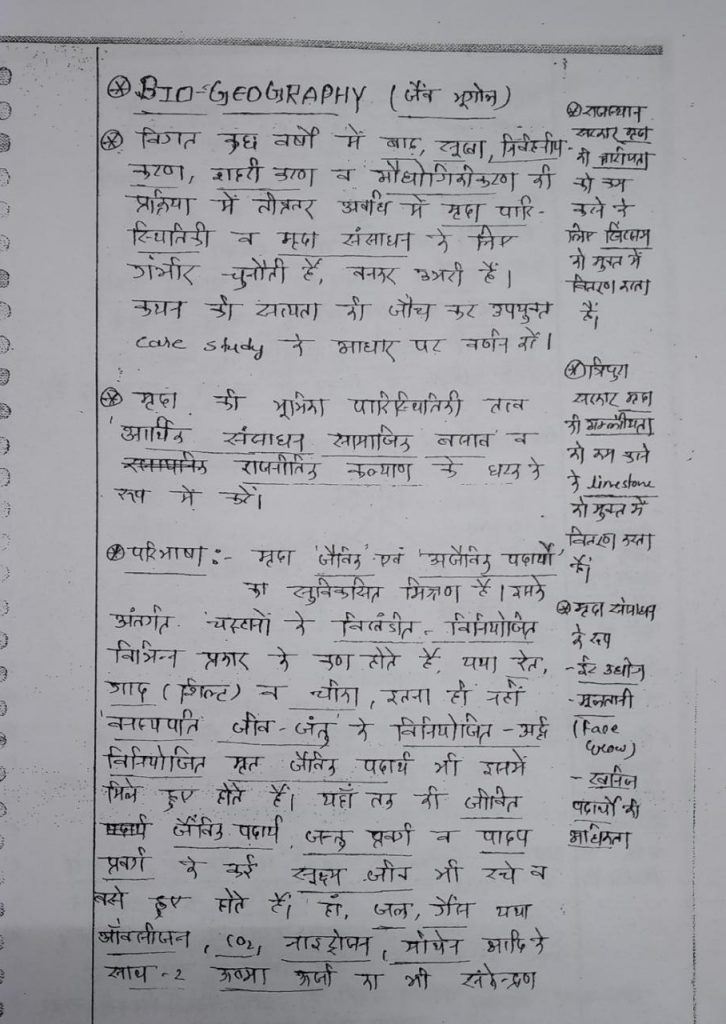 BIO-GEOGRAPHY (जैव भूगोल)
विगत कुछ वर्षों में बाढ़, सूखा,
करण, शहरी करण व औद्योगिकीकरण की
प्रक्रिया में तीव्रतर अवधि में मृदा पारि-
स्थितिकी व मृदा संसाधन के लिए
गंभीर चुनौती है, बनकर उभरी है।
कथन की सत्यता की जाँच कर उपयुक्त
case study के आधार पर वर्णन करें।
मृदा की भूमिका पारिस्थितिकी तत्व
आर्थिक संसाधन सामाजिक बचाव व
राजनीतिक कल्याण के घटक के
रूप में करें।
परिभाषा :- मृदा 'जैविक' एवं 'अजैविक पदार्थों'
का सुविकसित मिश्रण है। इसके
अंतर्गत चट्टानों के विखंडित - वियोजित
विभिन्न प्रकार के कण होते है, यथा रेत,
गाद (शिल्ट) व चीका, इतना ही नहीं
वनस्पति जीव-जंतु के वियोजित - अर्द्ध
वियोजित मृत जैविक पदार्थ भी इसमें
मिले हुए होते हैं। यहाँ तक की जीवित
जैविक पदार्थ जन्तु प्रवर्ग व पादप
प्रवर्ग के कई सूक्ष्म जीव भी रचे व
बसे हुए होते हैं। हाँ, जल, गैस यथा
ऑक्सीजन, CO₂, नाइट्रोजन, मीथेन आदि के
साथ-2 ऊष्मा ऊर्जा का भी संकेन्द्रण
राजस्थान
सरकार मृदा
की क्षारीयता
को कम
करने के
लिए जिप्सम
को मुफ्त में
वितरण करता
है।
त्रिपुरा
सरकार मृदा
की अम्लीयता
को कम करने
के limestone
को मुफ्त में
वितरण करता
है।
मृदा संसाधन
के रूप
- ईंट उद्योग
- मुल्तानी
(Face
- खनिज
पदार्थों की
अधिकता